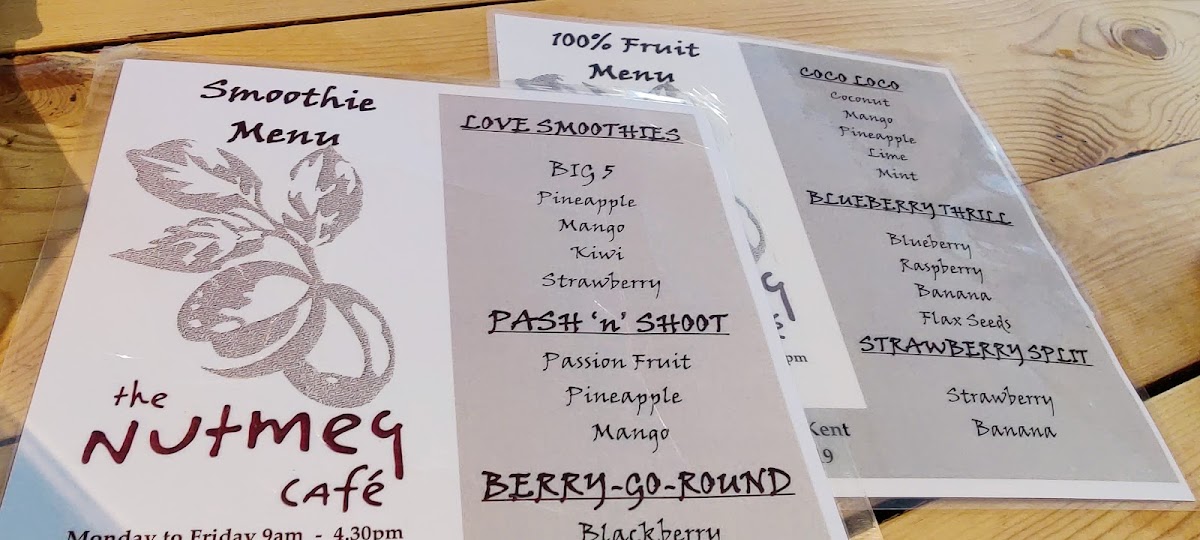 Smoothie
Menu
the
Nutmeg
café
Monday to Friday 9am - 4.30pm
LOVE SMOOTHIES
BIG 5
Pineapple
Mango
Kiwi
Strawberry
PASH 'n' SHOOT
Passion Fruit
Pineapple
Mango
BERRY-GO-ROUND
Blackberry
100% Fruit
Menu
pm
Kent
9
COCO LOCO
Coconut
Mango
Pineapple
Lime
Mint
BLUEBERRY THRILL
Blueberry
Raspberry
Banana
Flax Seeds
STRAWBERRY SPLIT
Strawberry
Banana